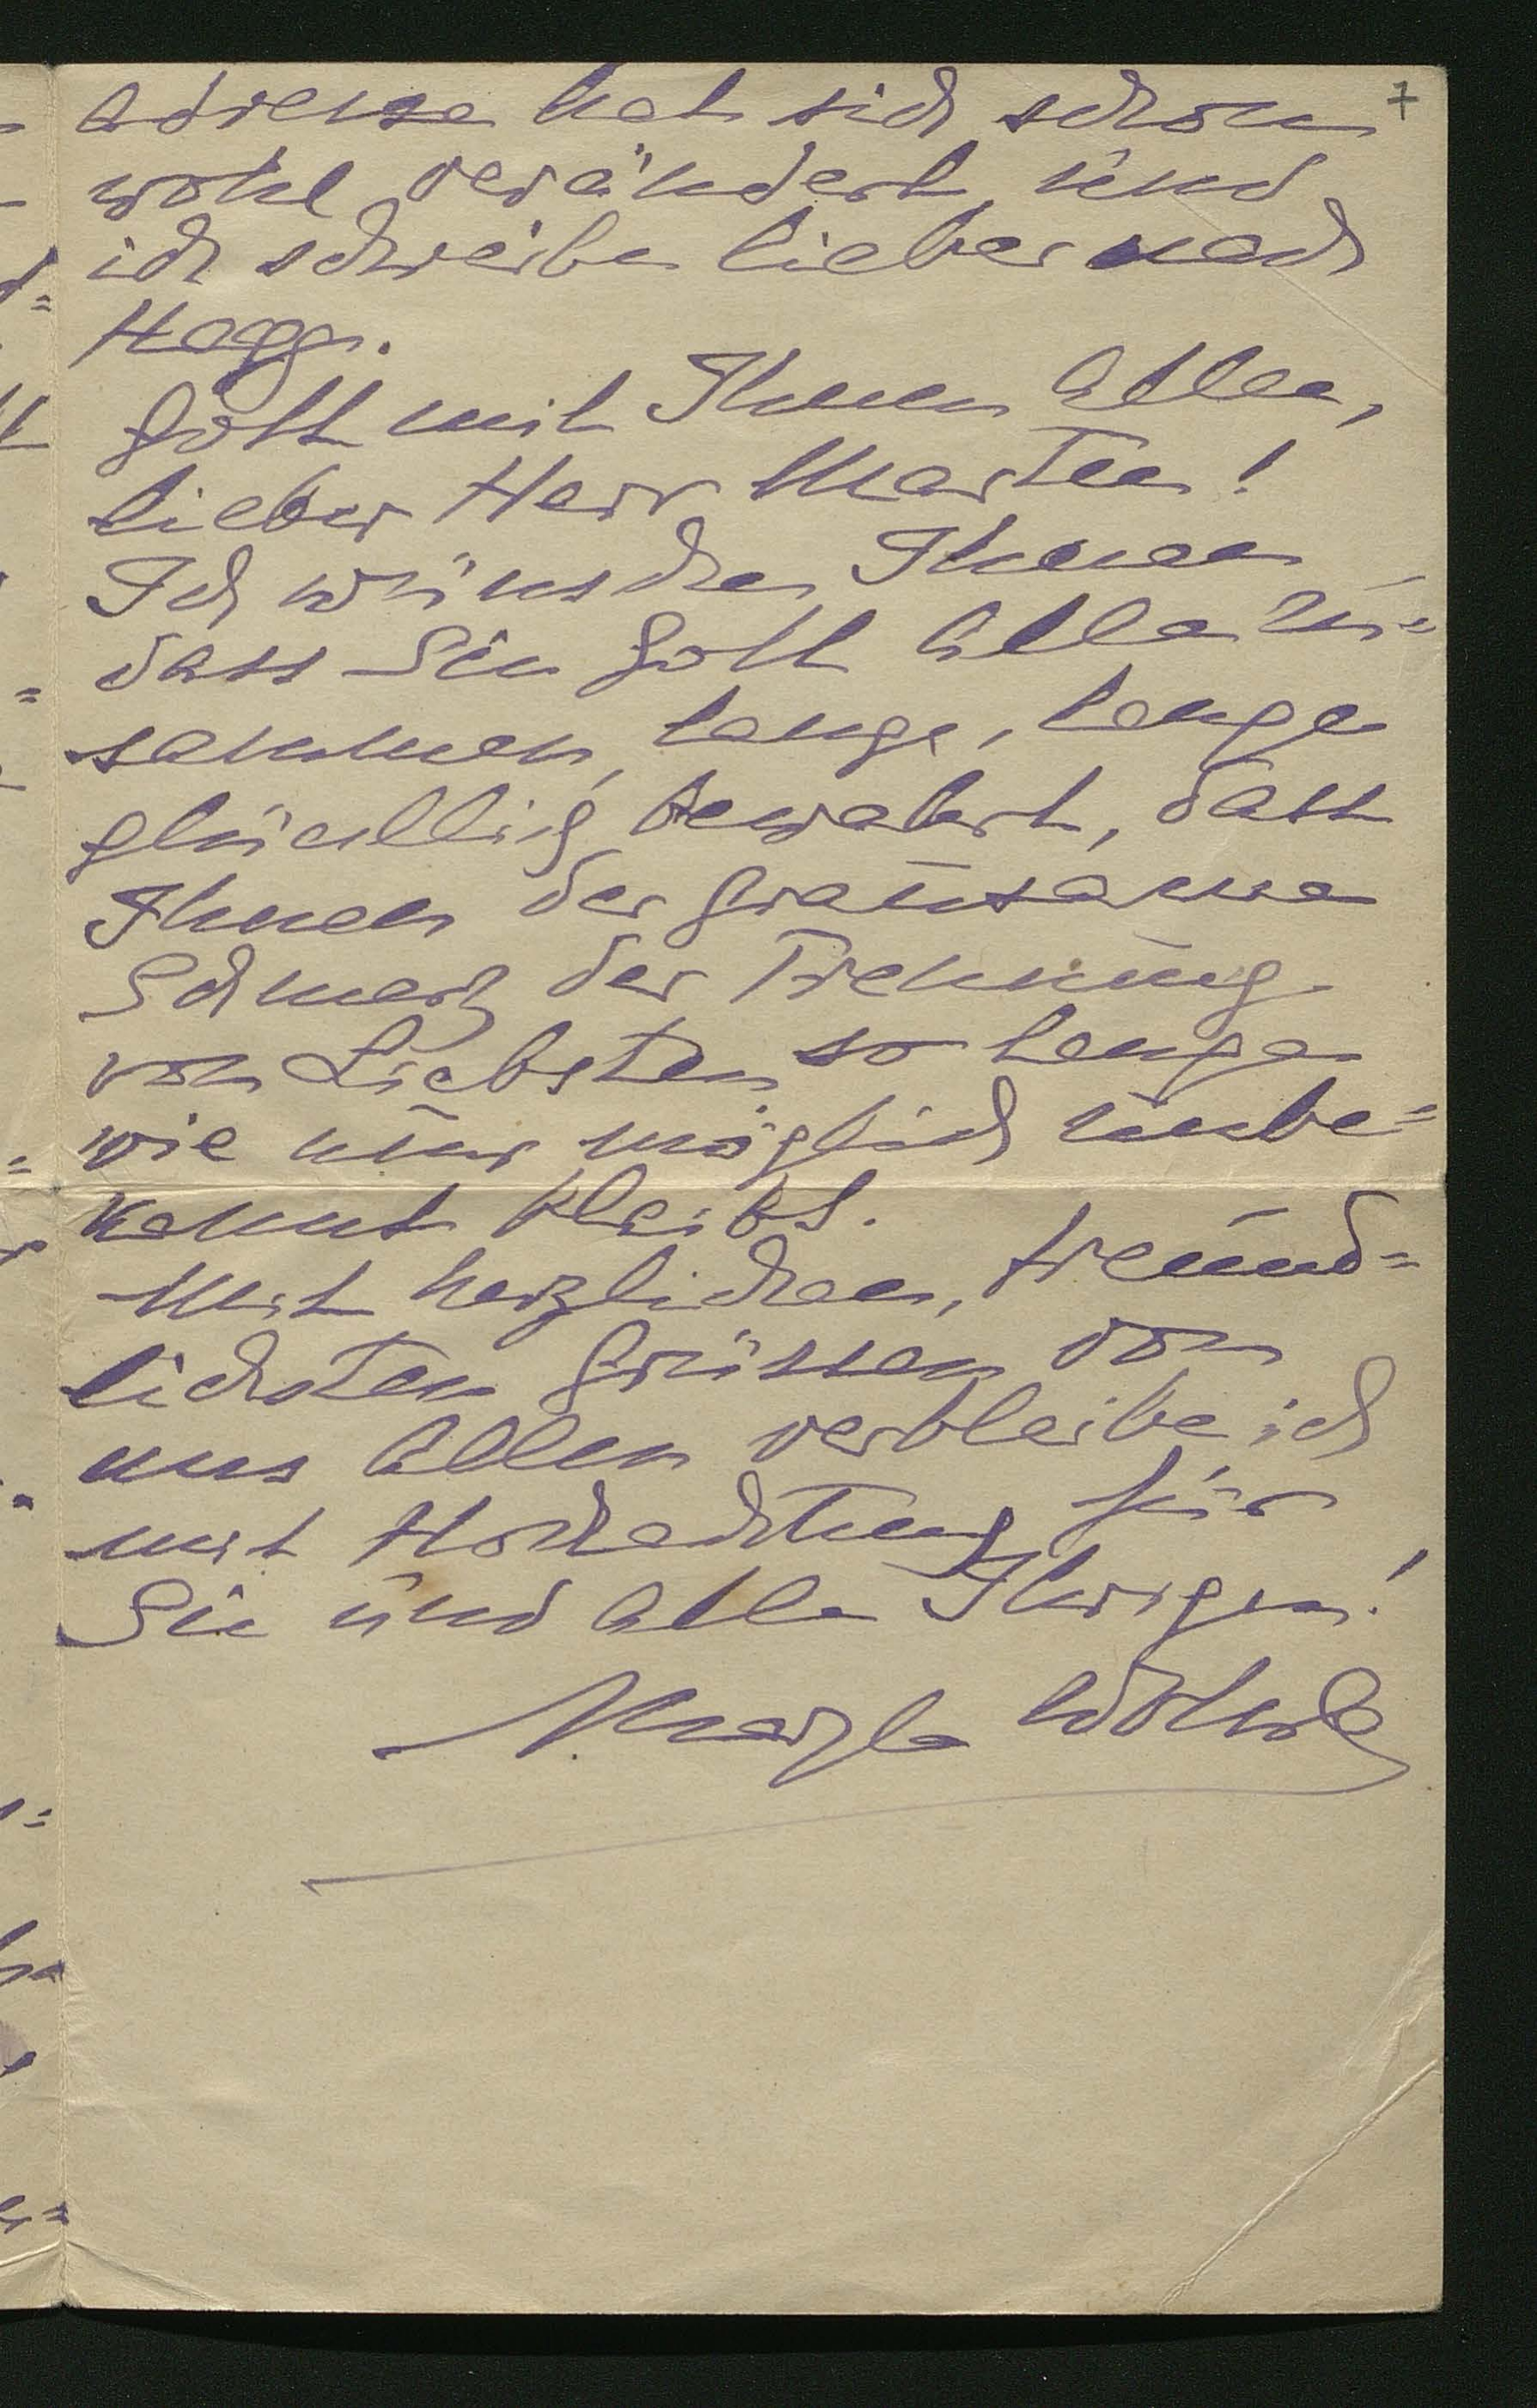 7
Adresse hat sich schon
wohl verändert und
ich schreibe lieber nach
Gott mit Ihnen Allen,
lieber Herr Marten!
Ich wünsche Ihnen
dass Sie Gott Alle zu=
sammen, lange, lange
glücklich bewahrt, dass
Ihnen der grausame
Schmerz der Trennung
von Liebsten so lange
wie nur möglich unbe=
kannt bleibt.
Mit herzlichen, freund=
lichsten Grüssen von
uns Allen verbleibe ich
mit Hochachtung für
Sie und alle Ihrigen!